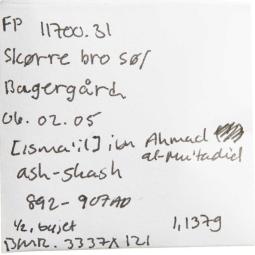 FP 11700.31
Skørre bro sø/
Bagergård
06.02.05
[isma'il] ibn Ahmad
al-Mu'tadid
ash-shash
892-907AD
1/2, bøjet 1,137g
DMR. 3337X121